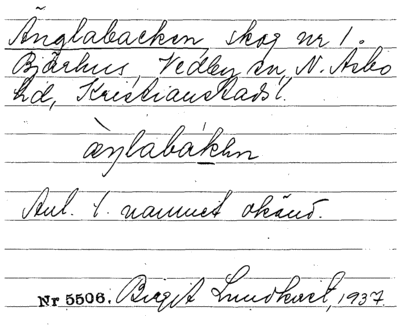 Änglabacken, skog nr 1.
Bjärhus, Vedby sn, N. Åsbo
hd, Kristianstads l.
æŋlabákən
Anl. t. namnet okänd.
Nr 5506. Birgit Lundkvist, 1937.